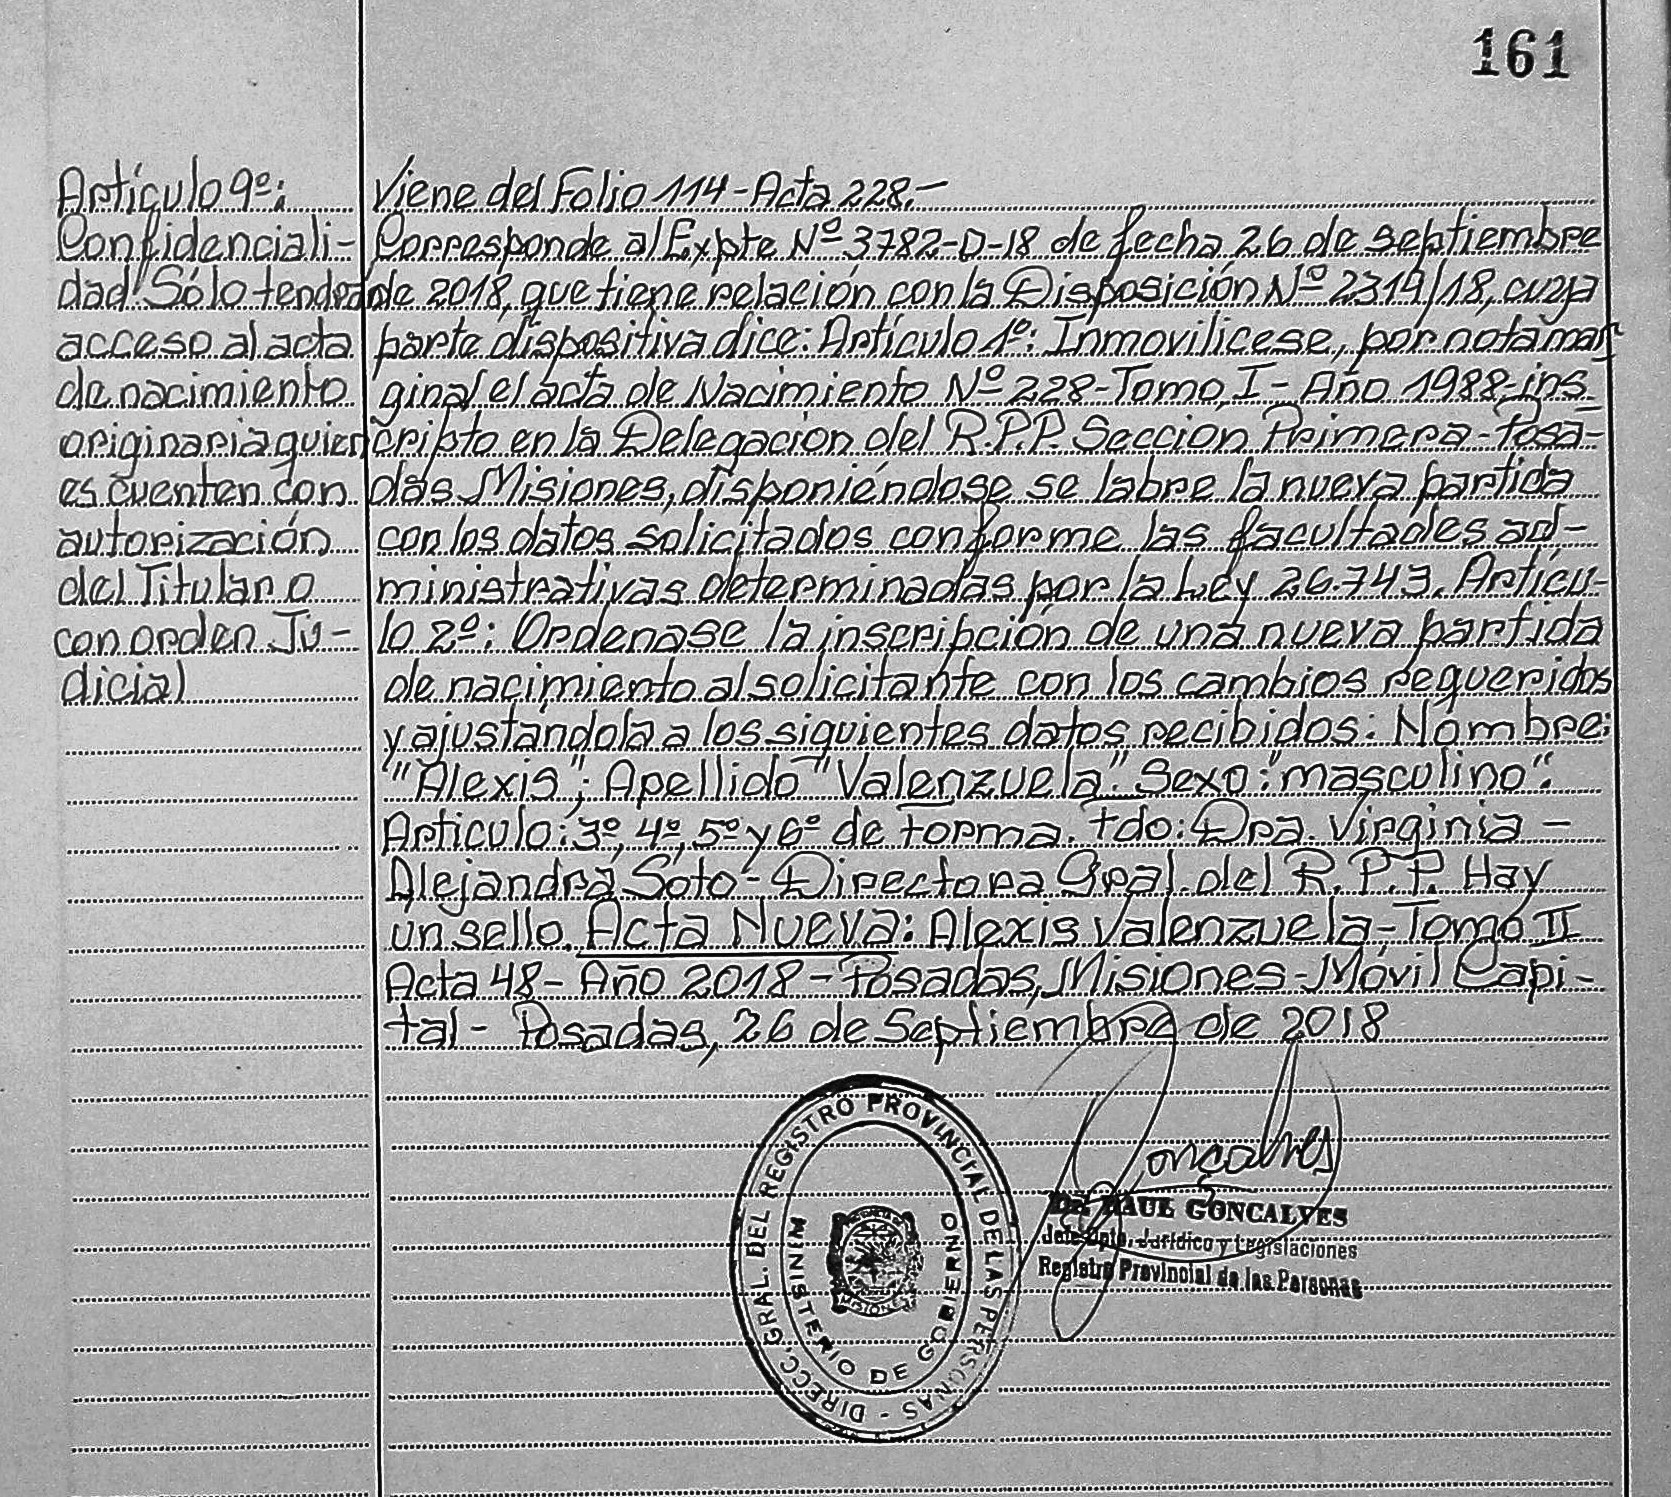 161
Artículo 9º:
Confidenciali-
dad Sólo tendrán
acceso al acta
de nacimiento
originaria quien
es cuenten con
autorización
del Titular o
con orden Ju-
dicial
Viene del Folio 114-Acta 228.-
Corresponde al Expte Nº 3782-D-18 de fecha 26 de septiembre
de 2018, que tiene relación con la Disposición Nº 2319/18, cuya
parte dispositiva dice: Artículo 1º: Inmovilicese, por nota mar
ginal el acta de Nacimiento Nº 228-Tomo I- Año 1988-ins
cripto en la Delegación del R.P.P. Sección Primera-Posa-
das Misiones, disponiéndose se labre la nueva partida
con los datos solicitados conforme las facultades ad-
ministrativas determinadas por la Ley 26.743. Artícu-
lo 2º: Ordenase la inscripción de una nueva partida
de nacimiento al solicitante con los cambios requeridos
y ajustándola a los siguientes datos recibidos: Nombre:
"Alexis"; Apellido "Valenzuela" Sexo: "masculino".
Articulo: 3º, 4º, 5º y 6º de forma. fdo: Dra. Virginia -
Alejandra Soto - Directora Gral. del R.P.P. Hay
un sello. Acta Nueva: Alexis Valenzuela-Tomo II
Acta 48- Año 2018- Posadas, Misiones-Móvil Capi-
tal- Posadas, 26 de Septiembre de 2018
DIRECC. GRAL. DEL REGISTRO PROVINCIAL DE LAS PERSONAS -
MINISTERIO DE GOBIERNO
MISIONES
Goncalves
Dr. RAUL GONCALVES
Jefe Dpto. Jurídico y Legislaciones
Registro Provincial de las Personas